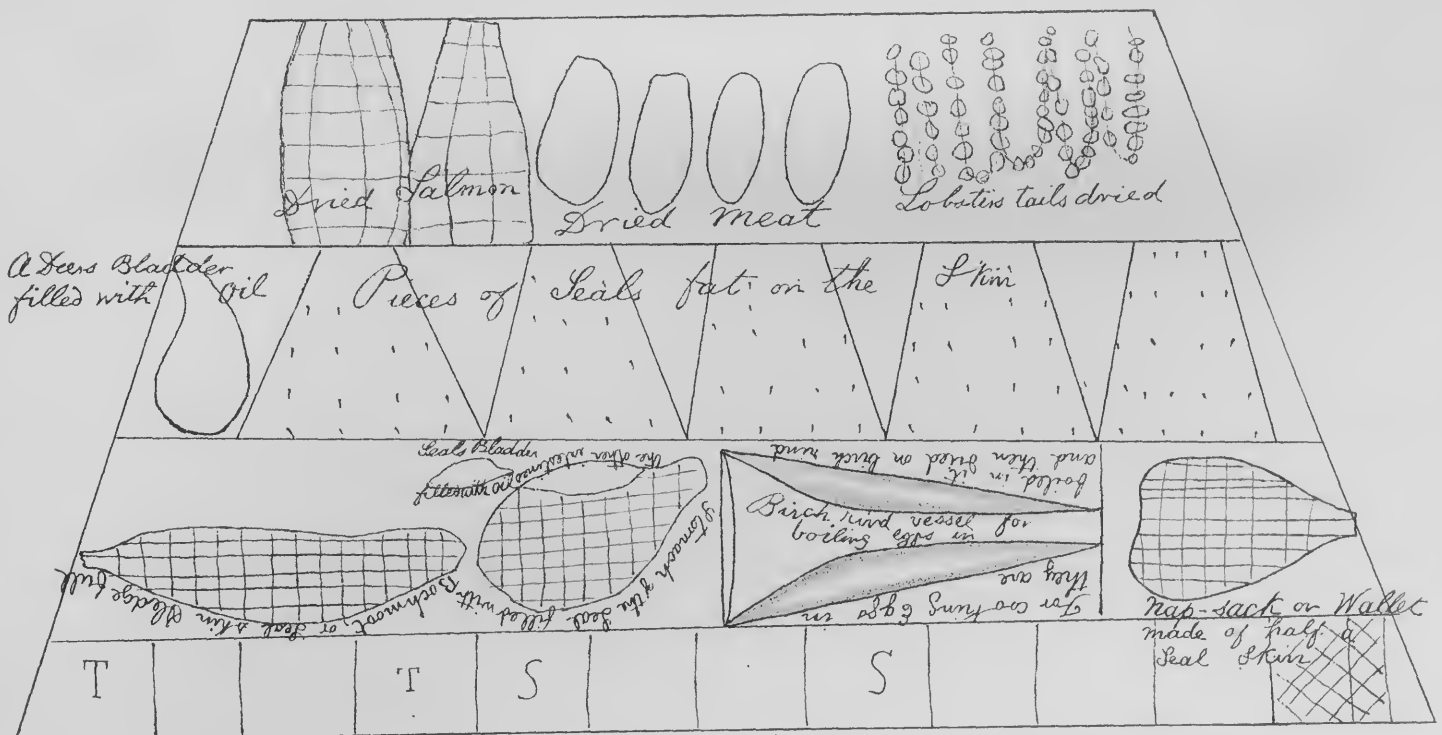 Dried Salmon
Dried meat
Lobsters tails dried
A Deers Bladder
filled with oil
Pieces of Seals fat on the Skin
Seals Bladder
filled with
the other intestines
Stomach of the Seal filled with
Bochmoot, or Seal skin Sledge full
Birch rind vessel for
boiling eggs in
For cooking Eggs in
they are
boiled in it
and then dried on birch rind
Nap-sack or Wallet
made of half a
Seal Skin
T T S S